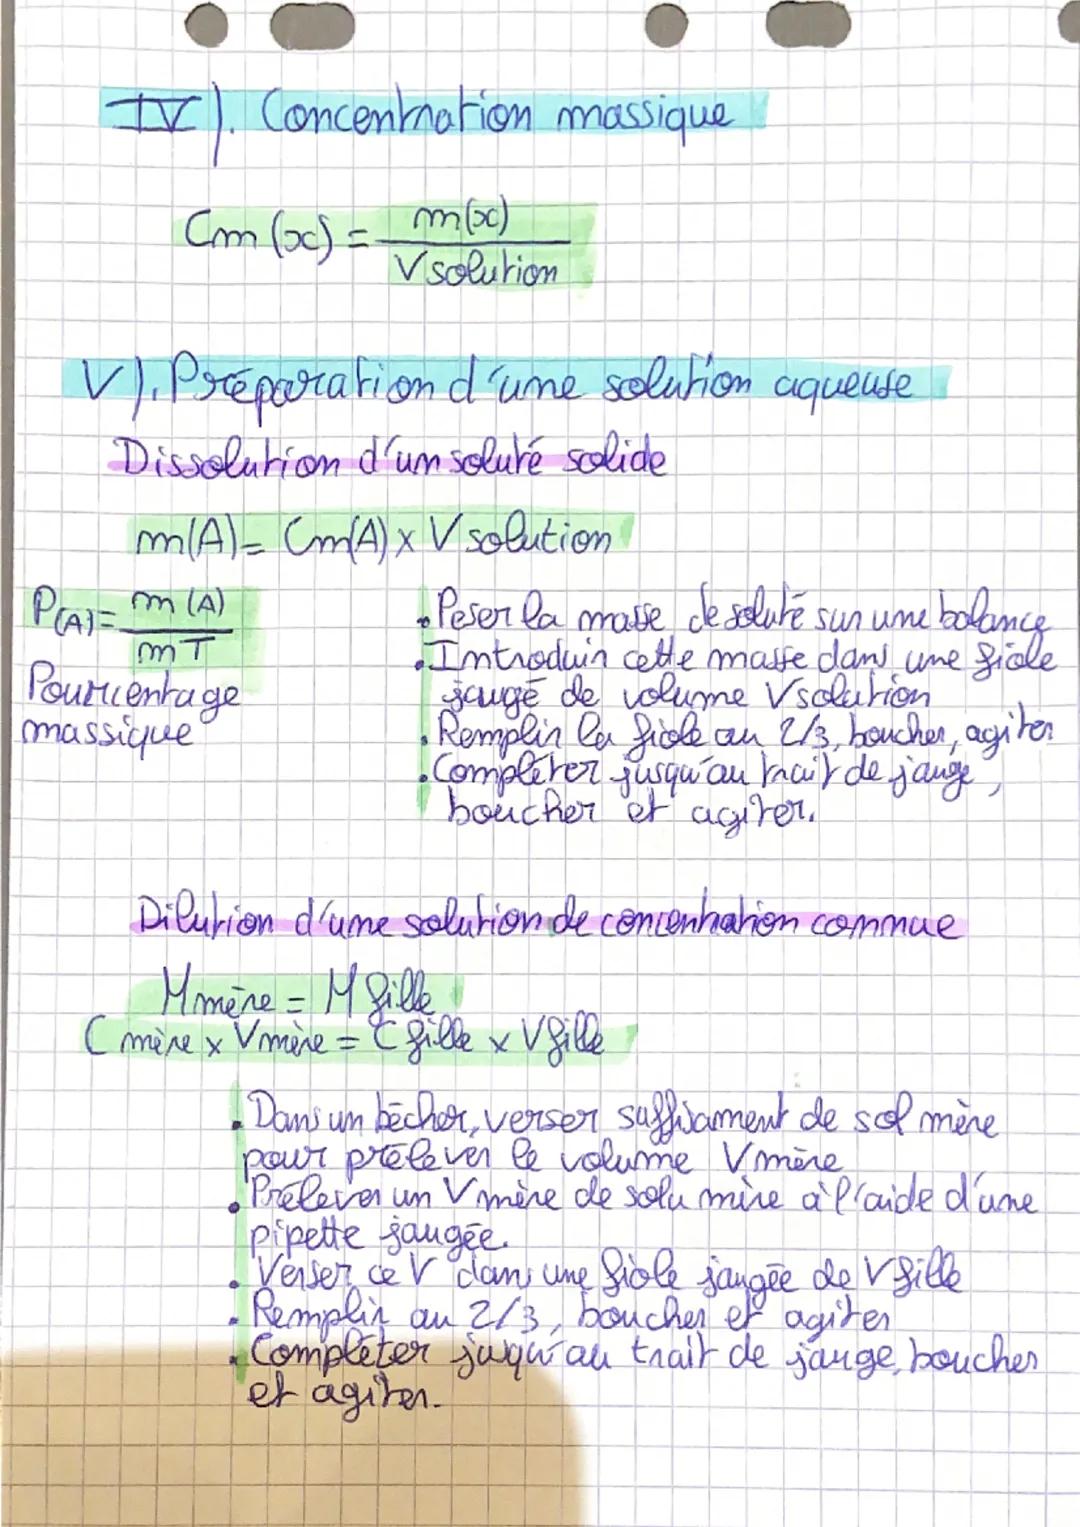 IV). Concentration massique
Cm (x) = m(x) / V solution
V). Préparation d'une solution aqueuse
Dissolution d'un soluté solide
m(A) = Cm(A) x V solution
P(A) = m (A) / mT
Pourcentage
massique
• Peser la masse de soluté sur une balance
• Introduir cette masse dans une fiole
jaugé de volume V solution
• Remplir la fiole au 2/3, boucher, agiter
• Compléter jusqu'au trait de jauge,
boucher et agiter.
Dilution d'une solution de concentration connue
M mère = M fille
C mère x V mère = C fille x V fille
• Dans un bécher, verser suffisament de sol mère
pour prélever le volume V mère
• Prélever un V mère de solu mère à l'aide d'une
pipette jaugée.
• Verser ce V dans une fiole jaugée de V fille
• Remplir au 2/3, boucher et agiter
• Compléter jusqu'au trait de jauge, boucher
et agiter.